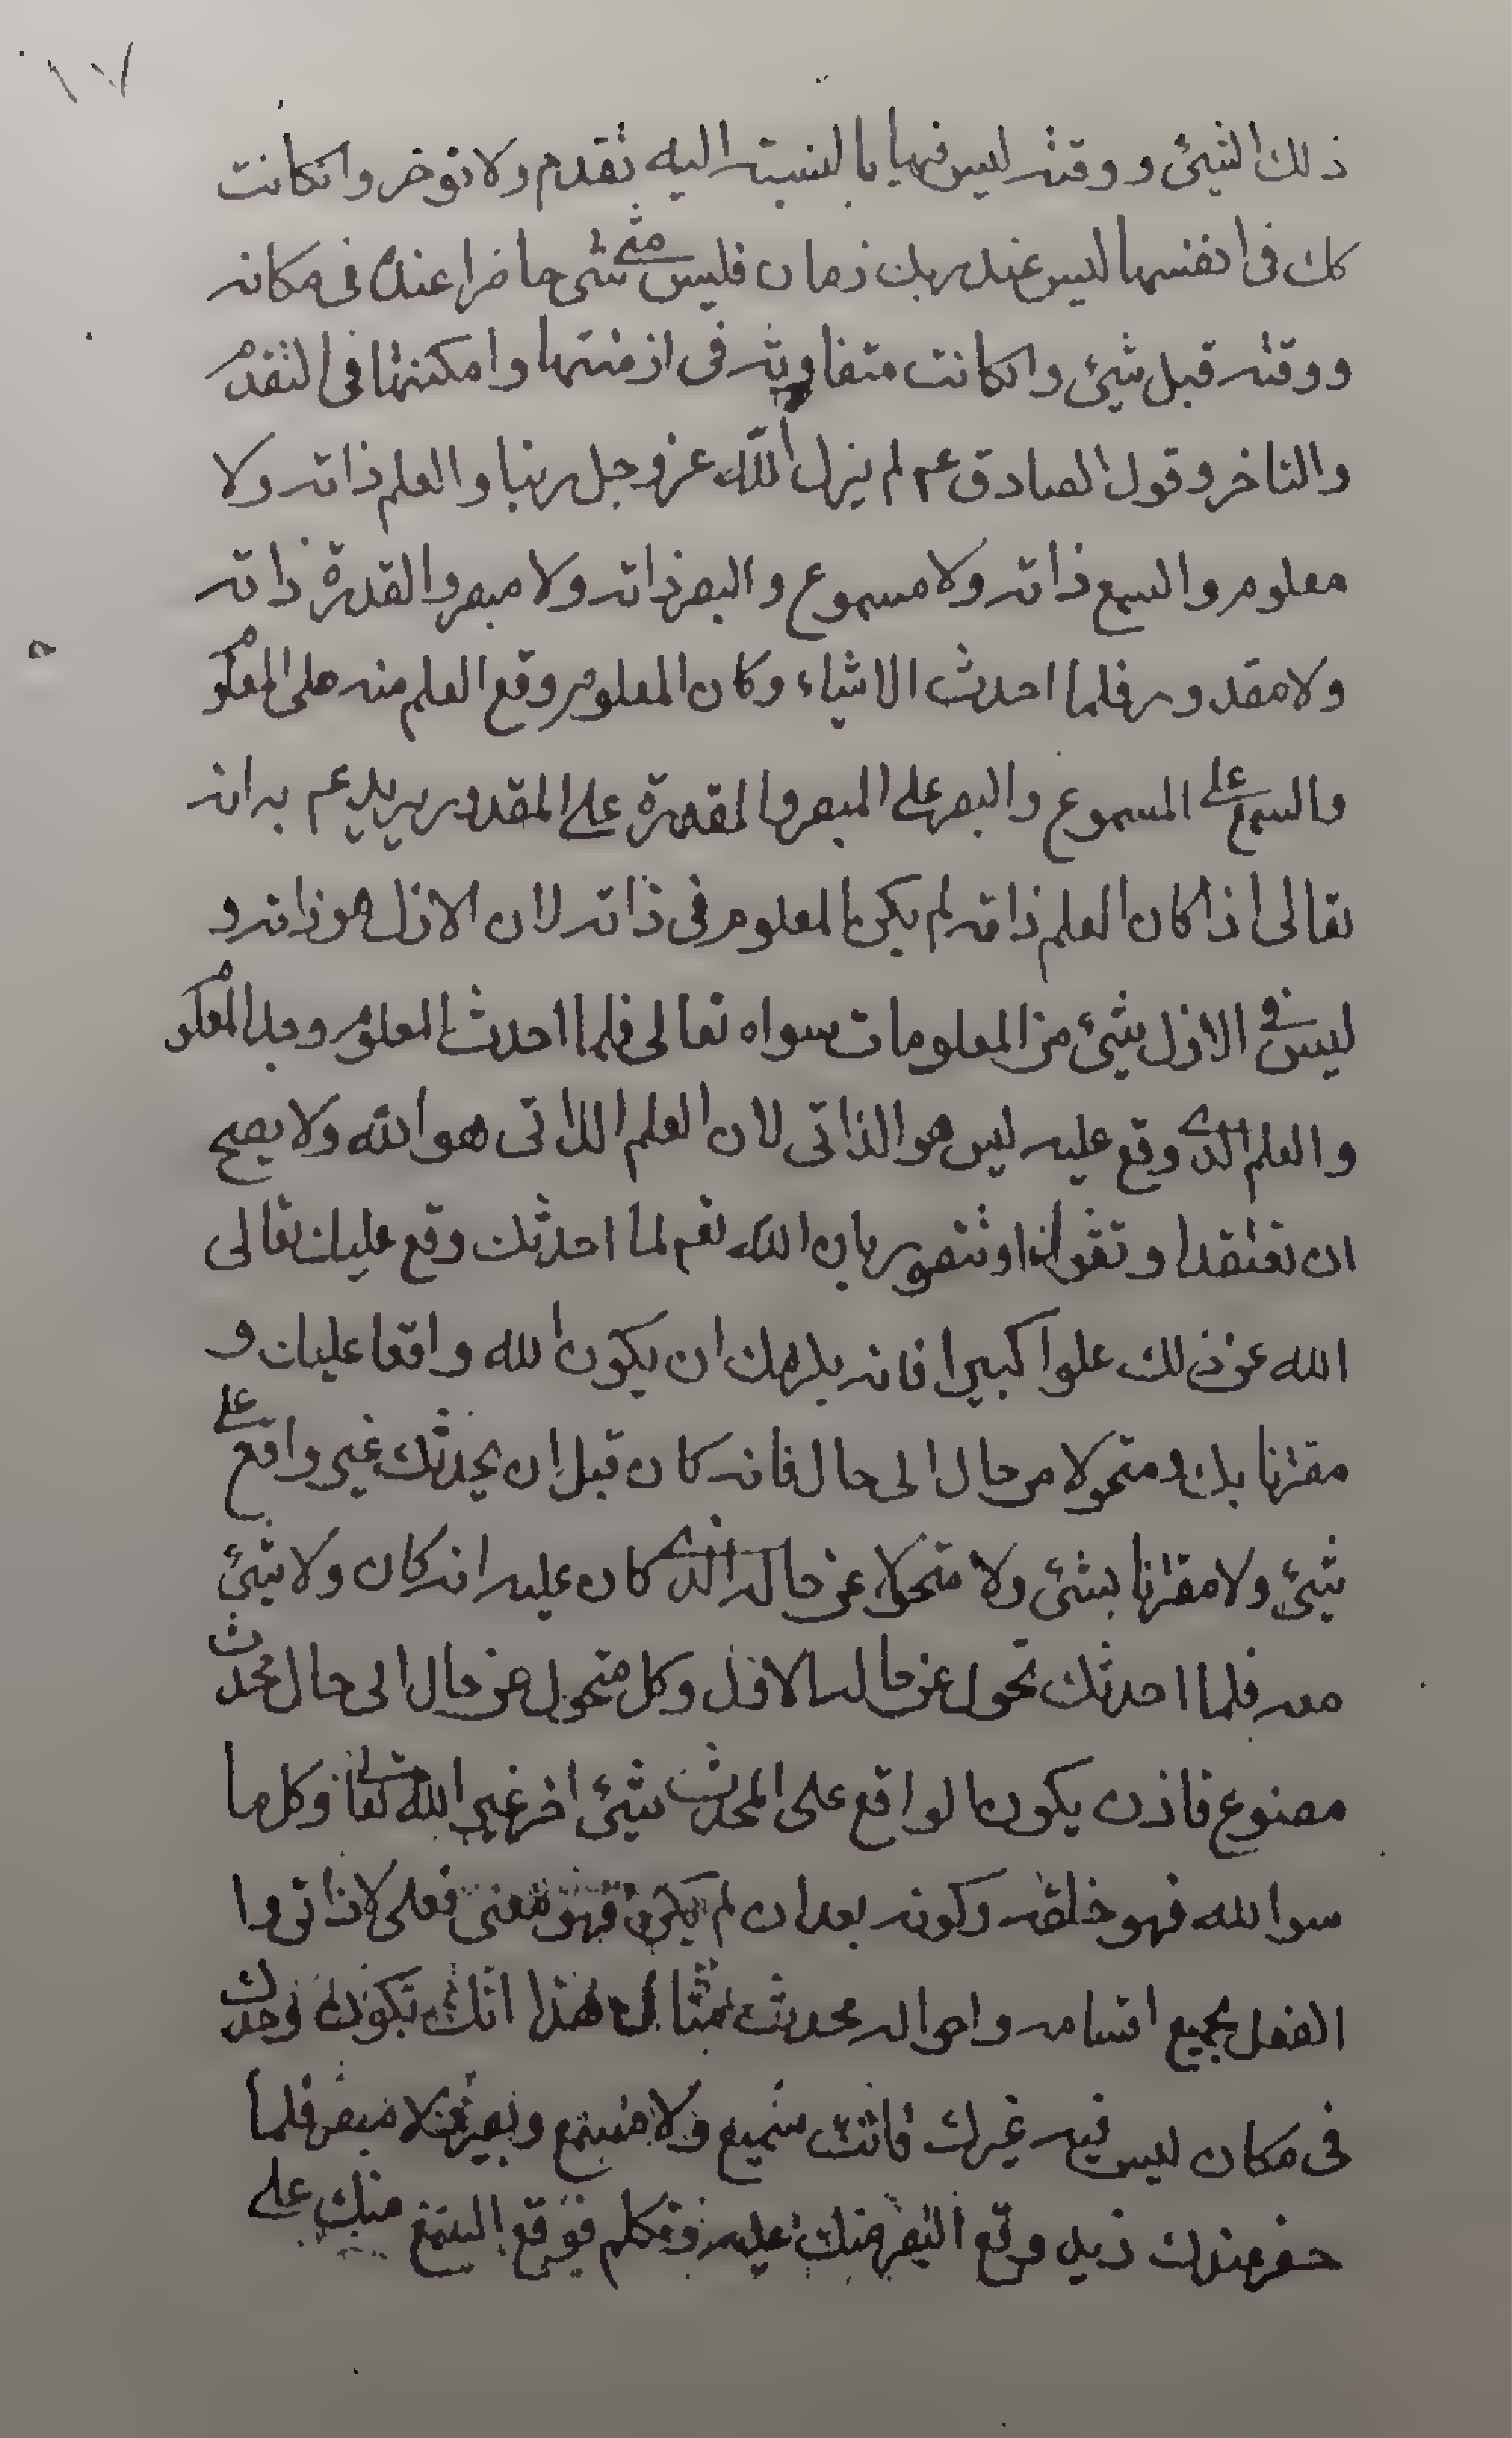 ١٧
ذلك الشيئ ووقته ليس فيها بالنسبته اليه تقدم ولا توخر وانكانت
كك في انفسها ليس عند ربك زمان فليس منه شئ حاضرا عنده في مكانه
ووقته قبل شيئ وانكانت متفاوته في ازمنتها وامكنتها في التقدم
والتاخر وقول الصادق عم لم يزل الله عز وجل ربنا والعلم ذاته ولا
معلوم والسمع ذاته ولا مسموع والبصر ذاته ولا مبصر والقدرة ذاته
ولا مقدور فلما احدث الاشياء وكان المعلوم وقع العلم منه على المعلوم
والسمع على المسموع والبصر على المبصر والقدرة على المقدور يريد عم به انه
تعالى اذا كان العلم ذاته لم يكن المعلوم في ذاته لان الازل هو ذاته و
ليس في الازل شيئ من المعلومات سواه تعالى فلما احدث المعلوم وجد المعلوم
والعلم الذي وقع عليه ليس هو الذاتي لان العلم الذاتي هو الله ولا يصح
ان تعتقد او تقول او تتصور بان الله نعم لما احدثك وقع عليك تعالى
الله عن ذلك علوا كبيرا فانه يلزمك ان يكون الله واقعا عليك و
مقترنا بك ومتحولا من حال الى حال فانه كان قبل ان يحدثك غير واقع على
شيئ ولا مقترنا بشئ ولا متحولا عن حاله الذي كان عليه انه كان ولا شيئ
معه فلما احدثك تحول عن حاله الاول وكل متحول عن حال الى حال محدث
مصنوع فاذن يكون الواقع على المحدث شيئ اخر غير الله تعالى وكل ما
سوا لله فهو خلقه وكونه بعد ان لم يكن فهو معنى فعلى لا ذاتى وا
الفعل بجميع اقسامه واحواله محدث مثال هذا انك تكون وحدك
في مكان ليس فيه غيرك فانت سميع ولا مسمع وبصير ولا مبصر فلما
حضر عندك زيد وقع البصر منك عليه وتكلم فوقع السمع منك على